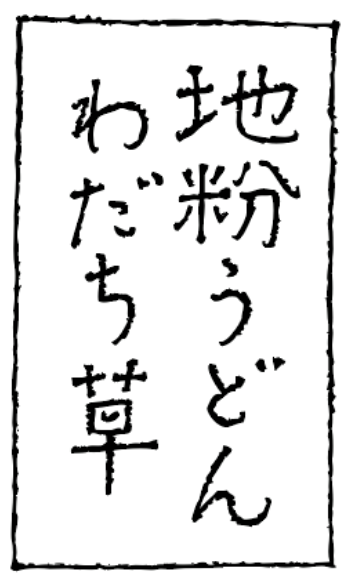 地粉うどん
わだち草